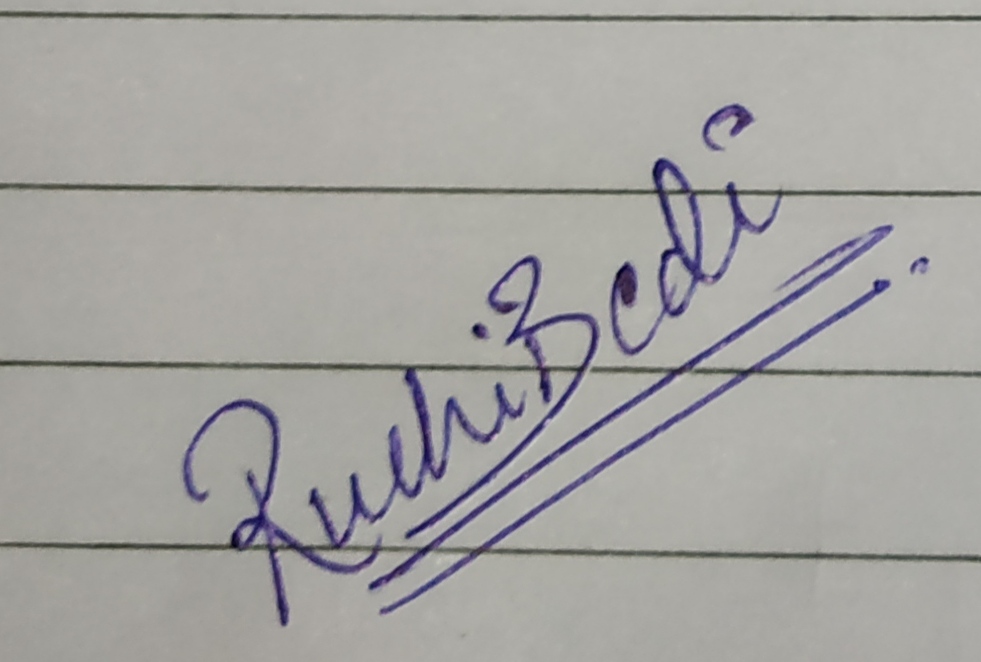 Ruchi Bedi